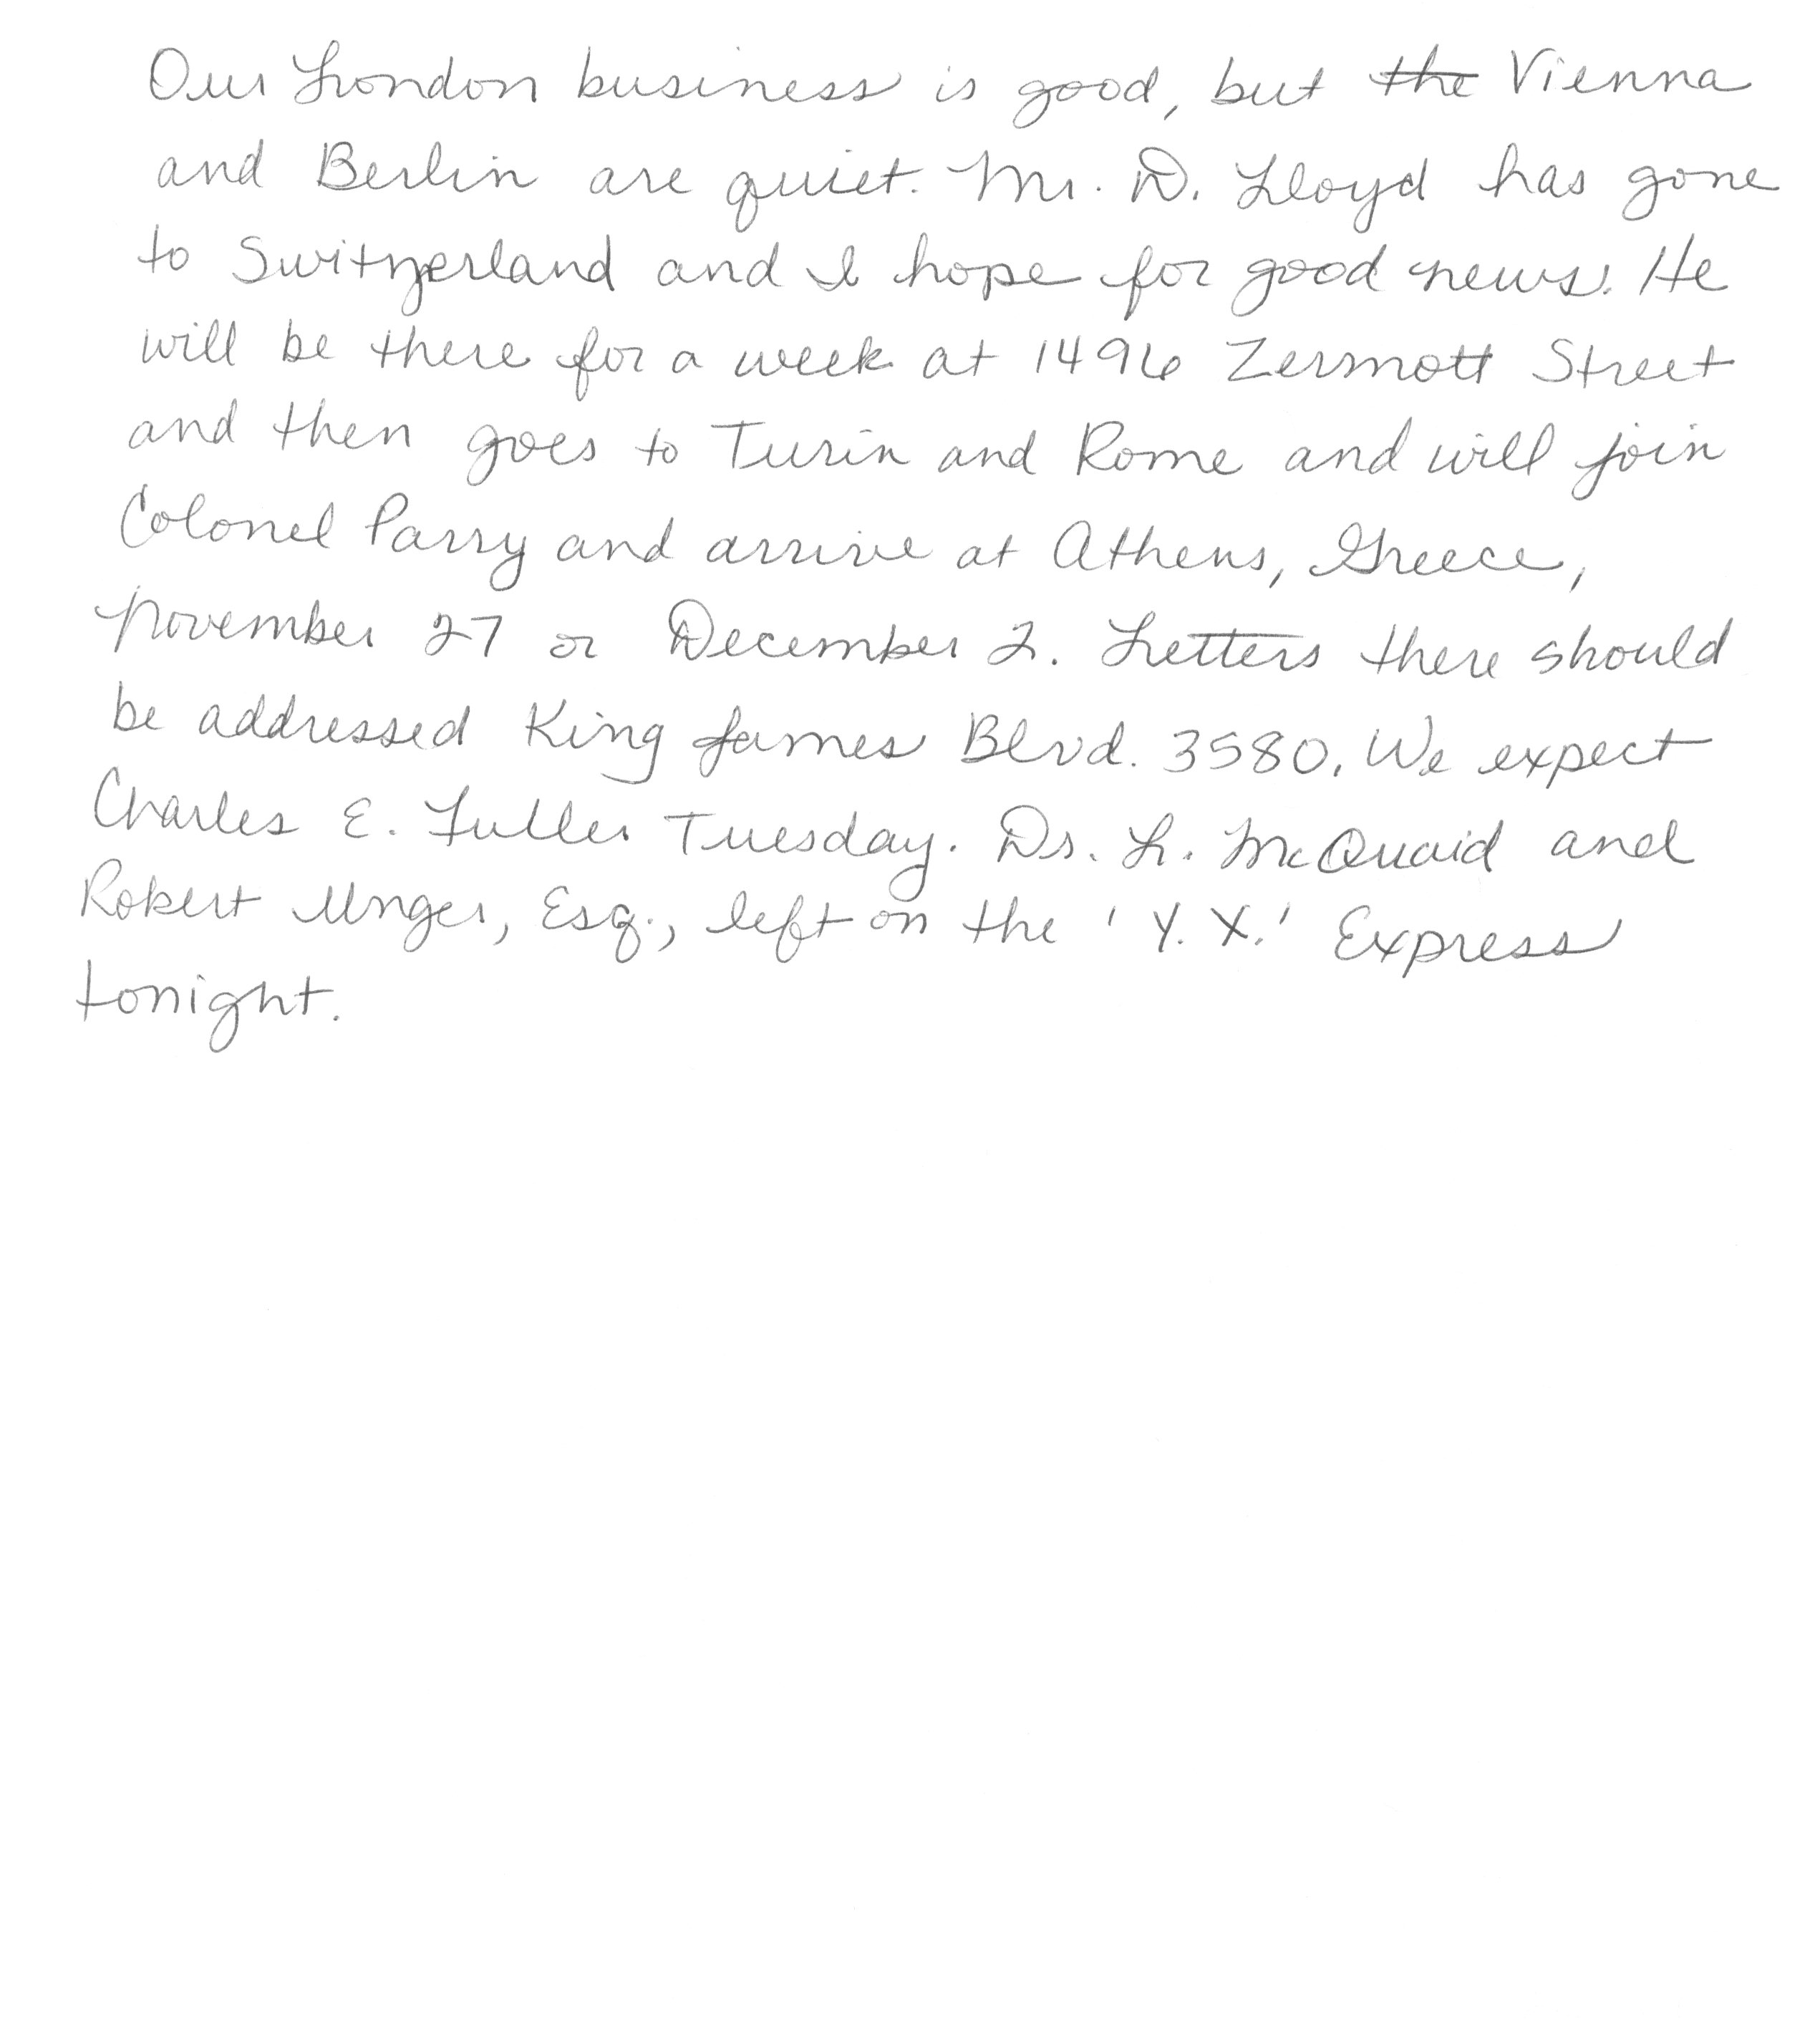 Our London business is good, but the Vienna
and Berlin are quiet. Mr. D. Lloyd has gone
to Switzerland and I hope for good news. He
will be there for a week at 1496 Zermott Street
and then goes to Turin and Rome and will join
Colonel Parry and arrive at Athens, Greece,
November 27 or December 2. Letters there should
be addressed King James Blvd. 3580. We expect
Charles E. Fuller Tuesday. Dr. L. McQuaid and
Robert Unger, Esq., left on the 'Y. X.' Express
tonight.